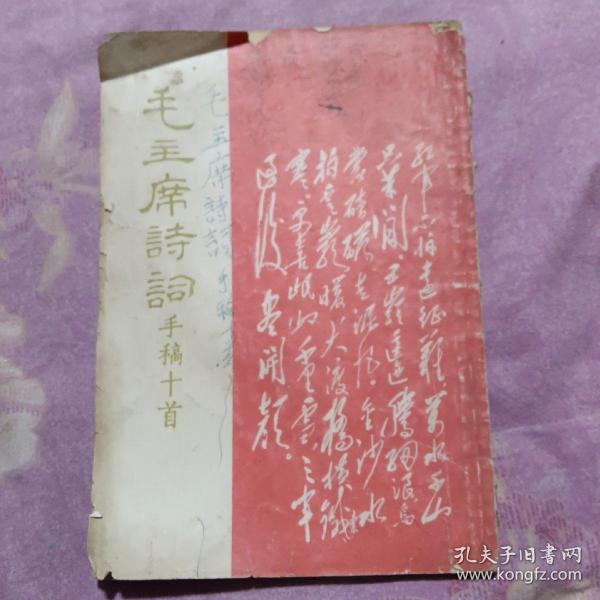 毛主席詩詞
手稿十首
毛主席詩詞手稿十首
紅軍不怕遠征難萬水千山
只等閒。五嶺逶迤騰細浪烏
蒙磅礴走泥丸。金沙水
拍雲崖暖大渡橋橫鐵索
寒更喜岷山千里雪三軍
過後盡開顏。
孔夫子旧书网
www.kongfz.com